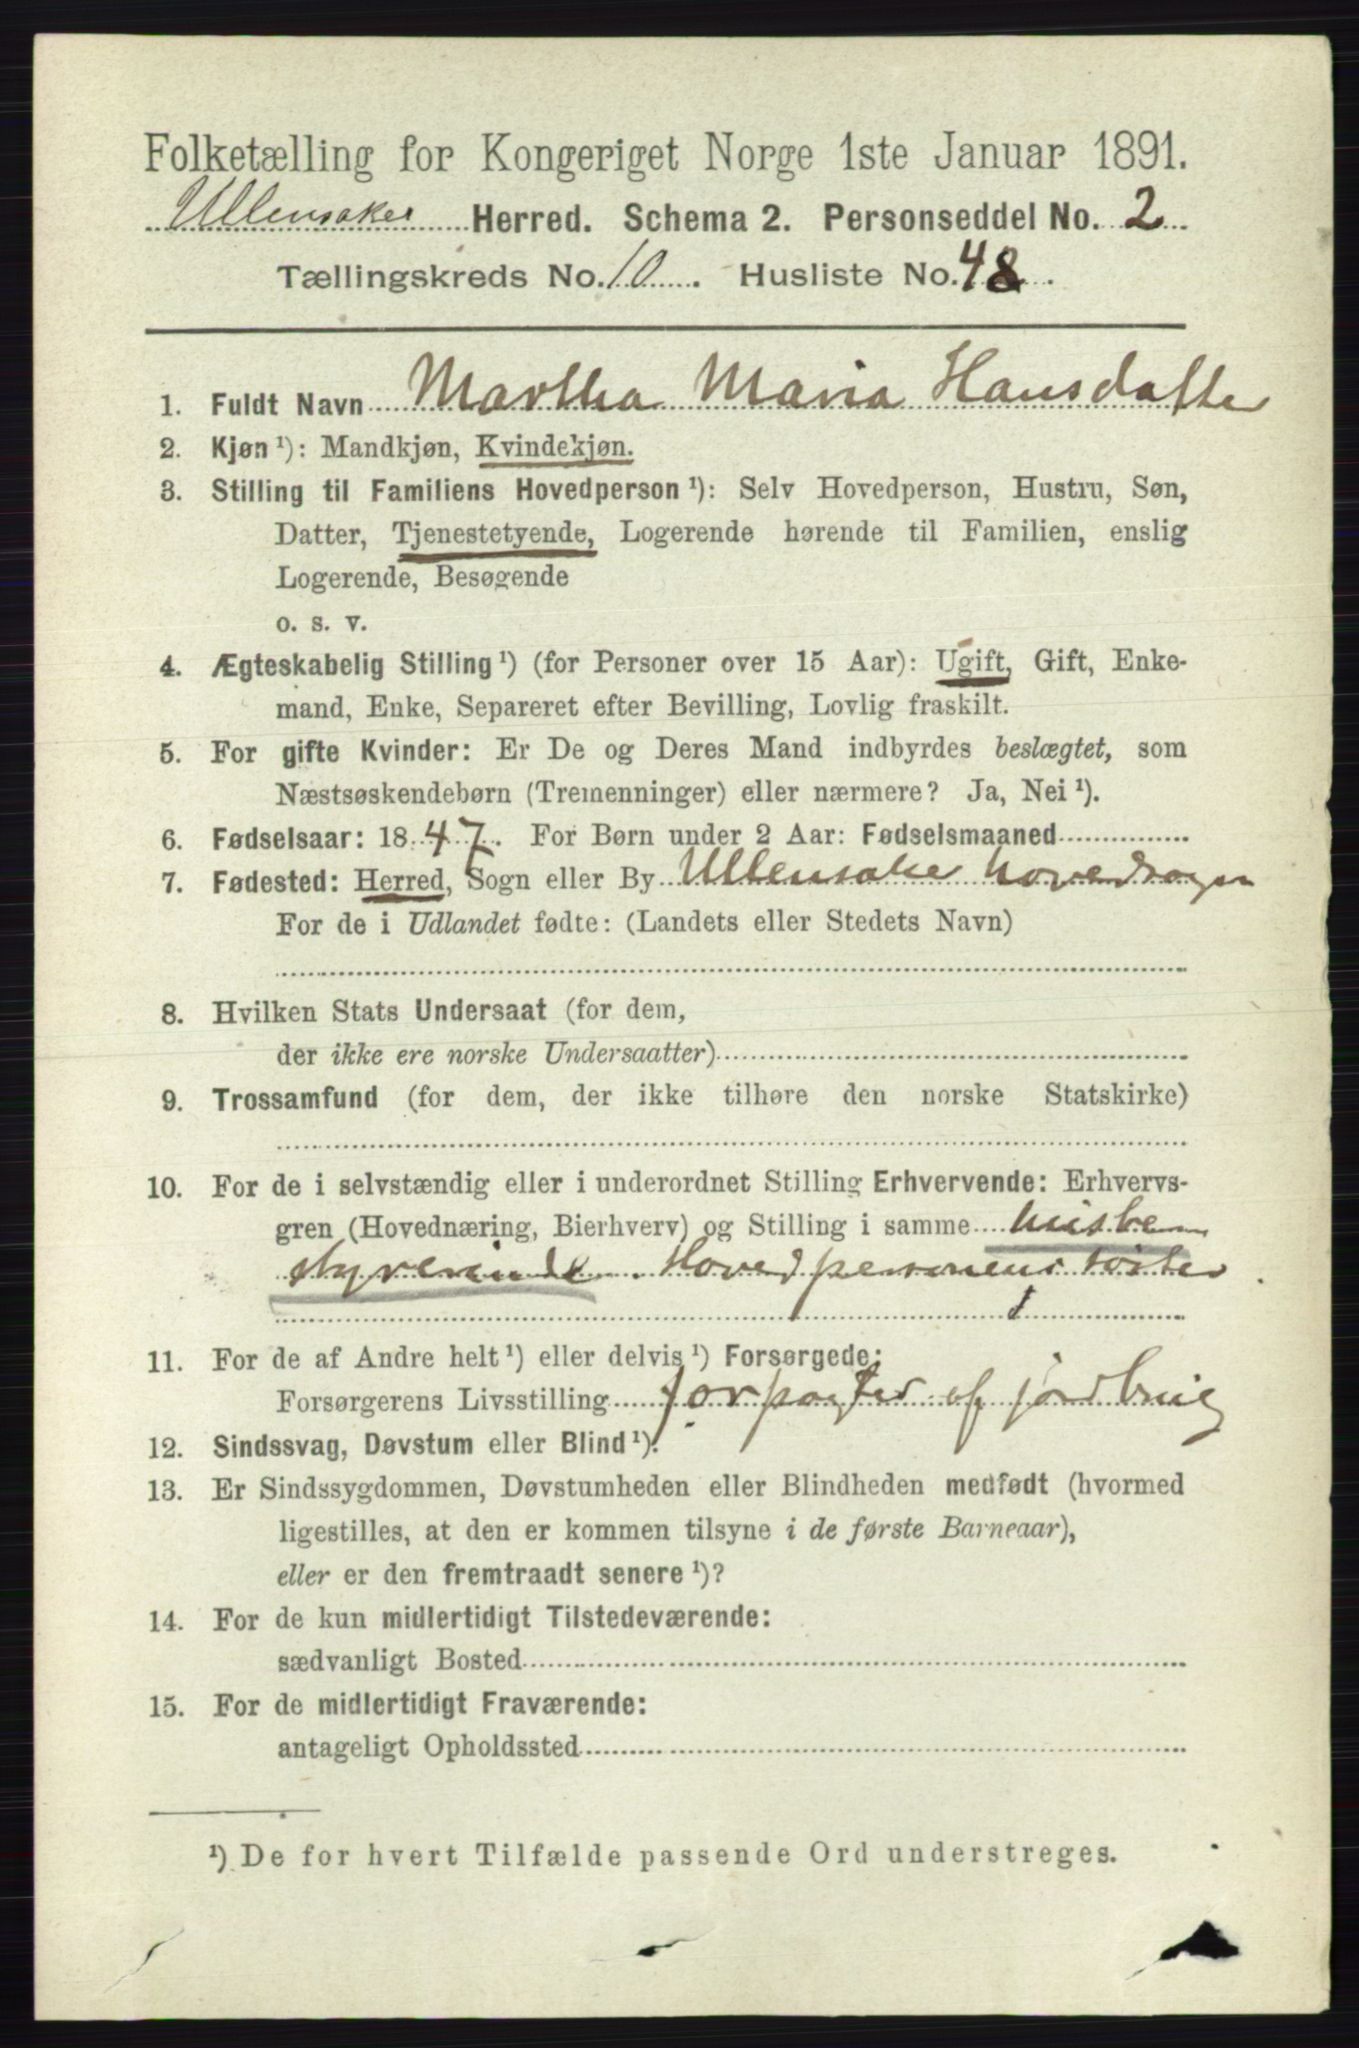 Folketælling for Kongeriget Norge 1ste Januar 1891.
Ullensaker Herred. Schema 2. Personseddel No. 2
Tællingskreds No. 10. Husliste No. 48.
1. Fuldt Navn Martha Maria Hansdatter
2. Kjøn ¹): Mandkjøn, Kvindekjøn.
3. Stilling til Familiens Hovedperson ¹): Selv Hovedperson, Hustru, Søn,
Datter, Tjenestetyende, Logerende hørende til Familien, enslig
Logerende, Besøgende
o. s. v.
4. Ægteskabelig Stilling ¹) (for Personer over 15 Aar): Ugift, Gift, Enke-
mand, Enke, Separeret efter Bevilling, Lovlig fraskilt.
5. For gifte Kvinder: Er De og Deres Mand indbyrdes beslægtet, som
Næstsøskendebørn (Tremenninger) eller nærmere? Ja, Nei ¹).
6. Fødselsaar: 1847. For Børn under 2 Aar: Fødselsmaaned
7. Fødested: Herred, Sogn eller By Ullensaker hovedsogn
For de i Udlandet fødte: (Landets eller Stedets Navn)
8. Hvilken Stats Undersaat (for dem,
der ikke ere norske Undersaatter)
9. Trossamfund (for dem, der ikke tilhøre den norske Statskirke)
10. For de i selvstændig eller i underordnet Stilling Erhvervende: Erhvervs-
gren (Hovednæring, Bierhverv) og Stilling i samme husbe
styrerinde. Hovedpersonens søster
11. For de af Andre helt ¹) eller delvis ¹) Forsørgede:
Forsørgerens Livsstilling forpagter af jordbrug
12. Sindssvag, Døvstum eller Blind ¹).
13. Er Sindssygdommen, Døvstumheden eller Blindheden medfødt (hvormed
ligestilles, at den er kommen tilsyne i de første Barneaar),
eller er den fremtraadt senere ¹)?
14. For de kun midlertidigt Tilstedeværende:
sædvanligt Bosted
15. For de midlertidigt Fraværende:
antageligt Opholdssted
¹) De for hvert Tilfælde passende Ord understreges.